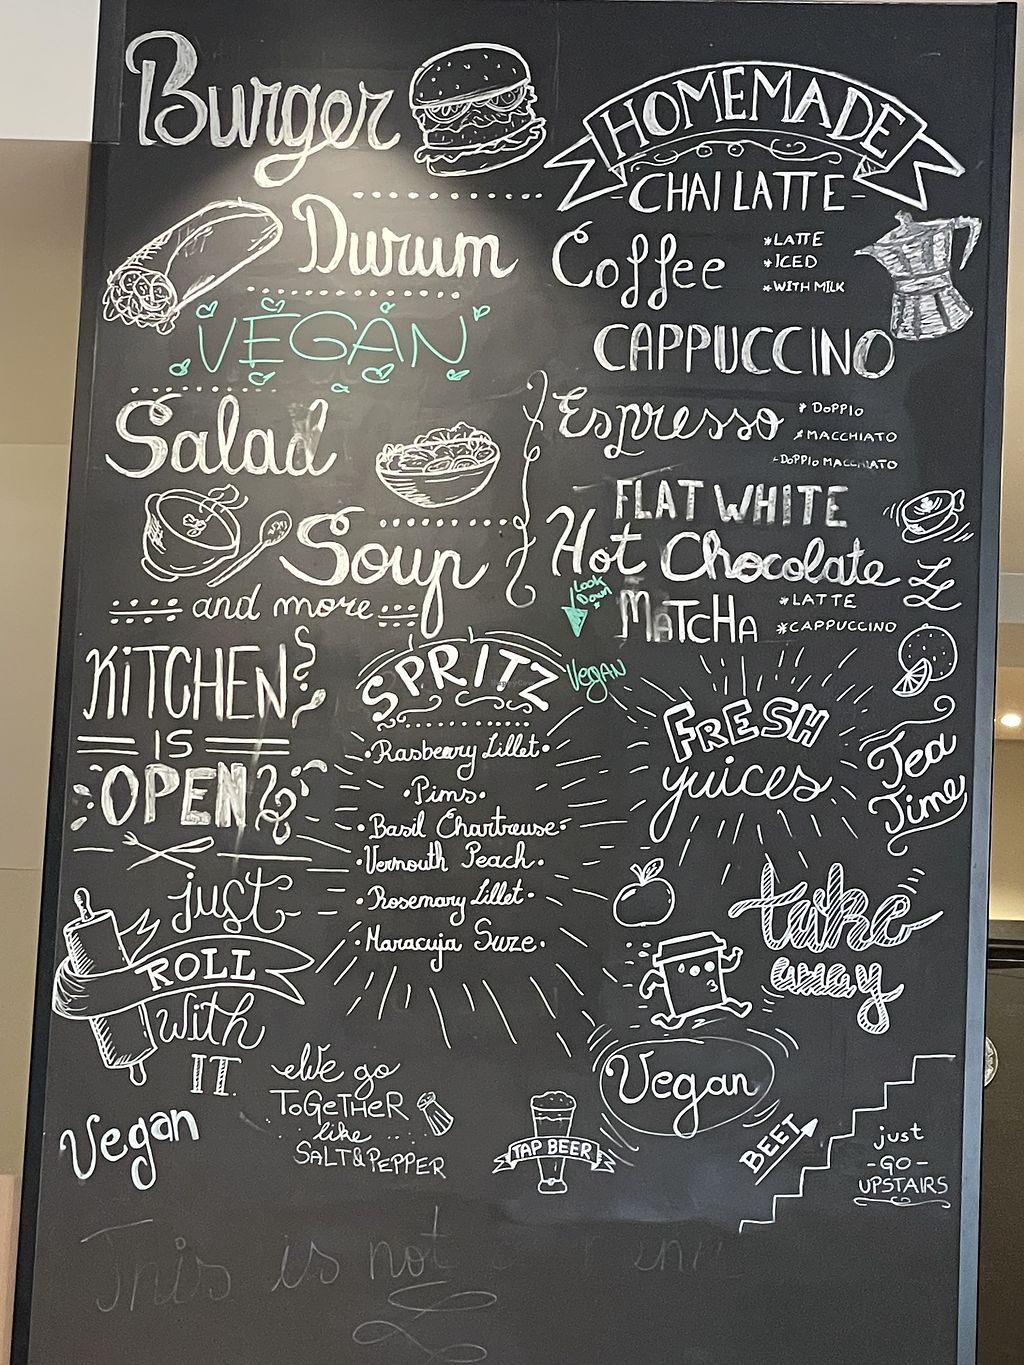 Burger
Durum
VEGAN
Salad
Soup
and more
KITCHEN
IS
OPEN
just
ROLL
with
IT
Vegan
We go
ToGeTHeR
like
SALT & PEPPER
HOMEMADE
-CHAI LATTE-
Coffee
*LATTE
*ICED
*WITH MILK
CAPPUCCINO
Espresso
* DOPPIO
*MACCHIATO
-DOPPIO MACCHIATO
FLAT WHITE
Hot Chocolate
Look
Down
MATCHA
*LATTE
*CAPPUCCINO
SPRITZ
•Rasbeery Lillet•
•Pims•
•Basil Chartreuse•
•Vermouth Peach•
•Rosemary Lillet•
•Maracuja Suze•
VEGAN
FRESH
yuices
Tea
Time
take
away
Vegan
TAP BEER
BEET
just
-GO-
UPSTAIRS
This is not